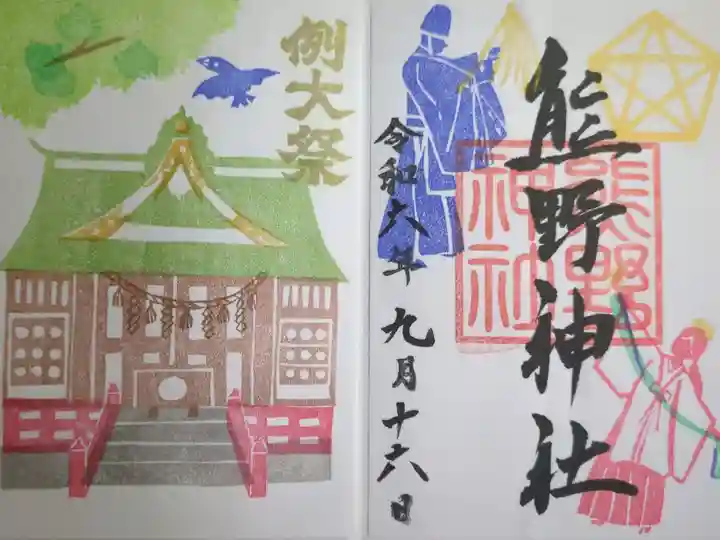 熊野神社
熊野
神社
令和六年九月十六日
例大祭